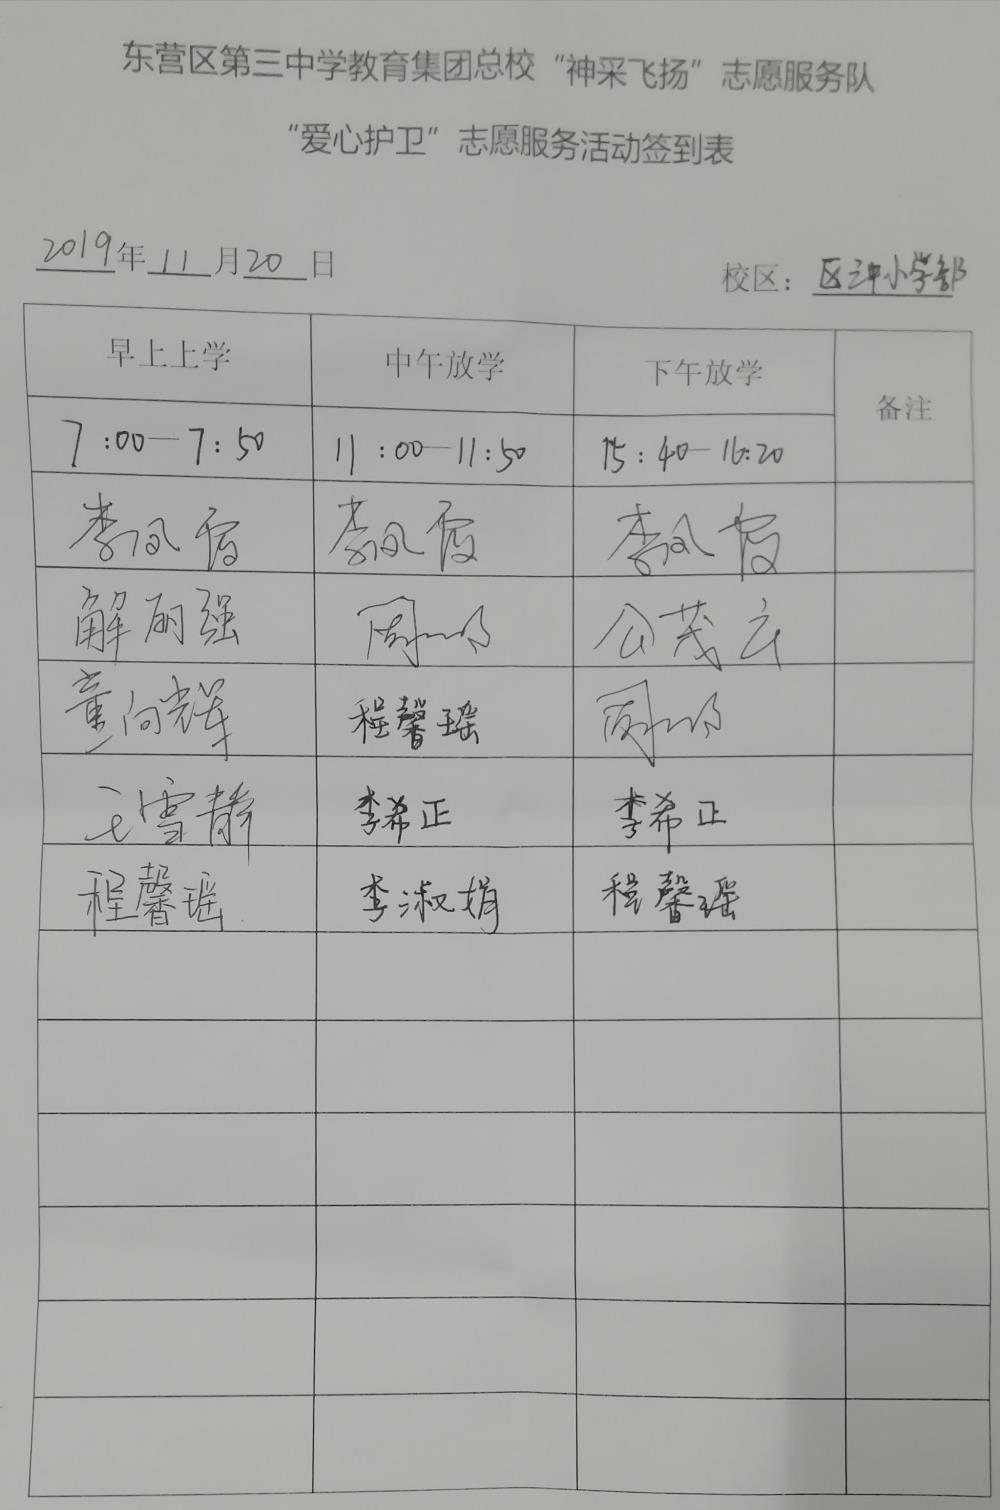 东营区第三中学教育集团总校“神采飞扬”志愿服务队
“爱心护卫”志愿服务活动签到表
2019年11月20日 校区：区三中小学部
早上上学 中午放学 下午放学 备注
7:00—7:50 11:00—11:50 15:40—16:20
李凤霞 李凤霞 李凤霞
解丽强 周 公茂云
童向辉 程馨瑶 周
王雪静 李希正 李希正
程馨瑶 李淑娟 程馨瑶